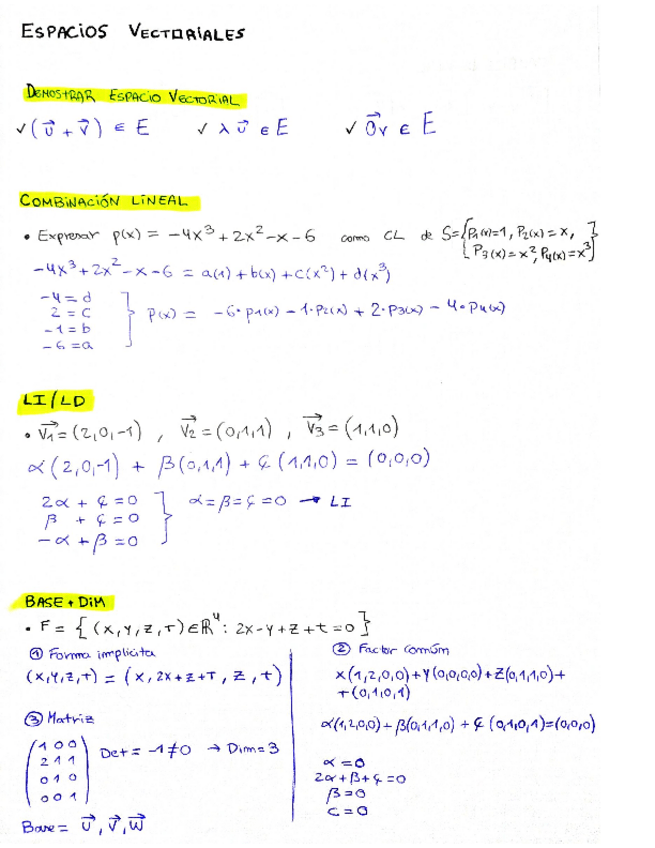 ESPACIOS VECTORIALES
DEMOSTRAR ESPACIO VECTORIAL
✓ (u⃗ + v⃗) ∈ E ✓ λ u⃗ ∈ E ✓ 0⃗v ∈ E
COMBINACIÓN LINEAL
• Expresar p(x) = -4x³ + 2x² - x - 6 como CL de S = {P₁(x)=1, P₂(x)=x,
P₃(x)=x², P₄(x)=x³}
-4x³ + 2x² - x - 6 = a(1) + b(x) + c(x²) + d(x³)
-4 = d
2 = c
-1 = b
-6 = a
p(x) = -6·p₁(x) - 1·P₂(x) + 2·P₃(x) - 4·P₄(x)
LI/LD
• V₁⃗ = (2,0,-1) , V₂⃗ = (0,1,1) , V₃⃗ = (1,1,0)
α(2,0,-1) + β(0,1,1) + ɕ(1,1,0) = (0,0,0)
2α + ɕ = 0
β + ɕ = 0
-α + β = 0
α = β = ɕ = 0 → LI
BASE + DIM
• F = {(x,y,z,T) ∈ ℝ⁴: 2x-y+z+t=0}
① Forma implicita
(x,y,z,T) = (x, 2x+z+T, z, t)
② Factor común
x(1,2,0,0)+y(0,0,0,0)+z(0,1,1,0)+
T(0,1,0,1)
α(1,2,0,0)+β(0,1,1,0)+ɕ(0,1,0,1)=(0,0,0)
α = 0
2α+β+ɕ=0
β=0
c=0
③ Matriz
1 0 0
2 1 1
0 1 0
0 0 1
Det = -1 ≠ 0 → Dim = 3
Base = u⃗, v⃗, w⃗